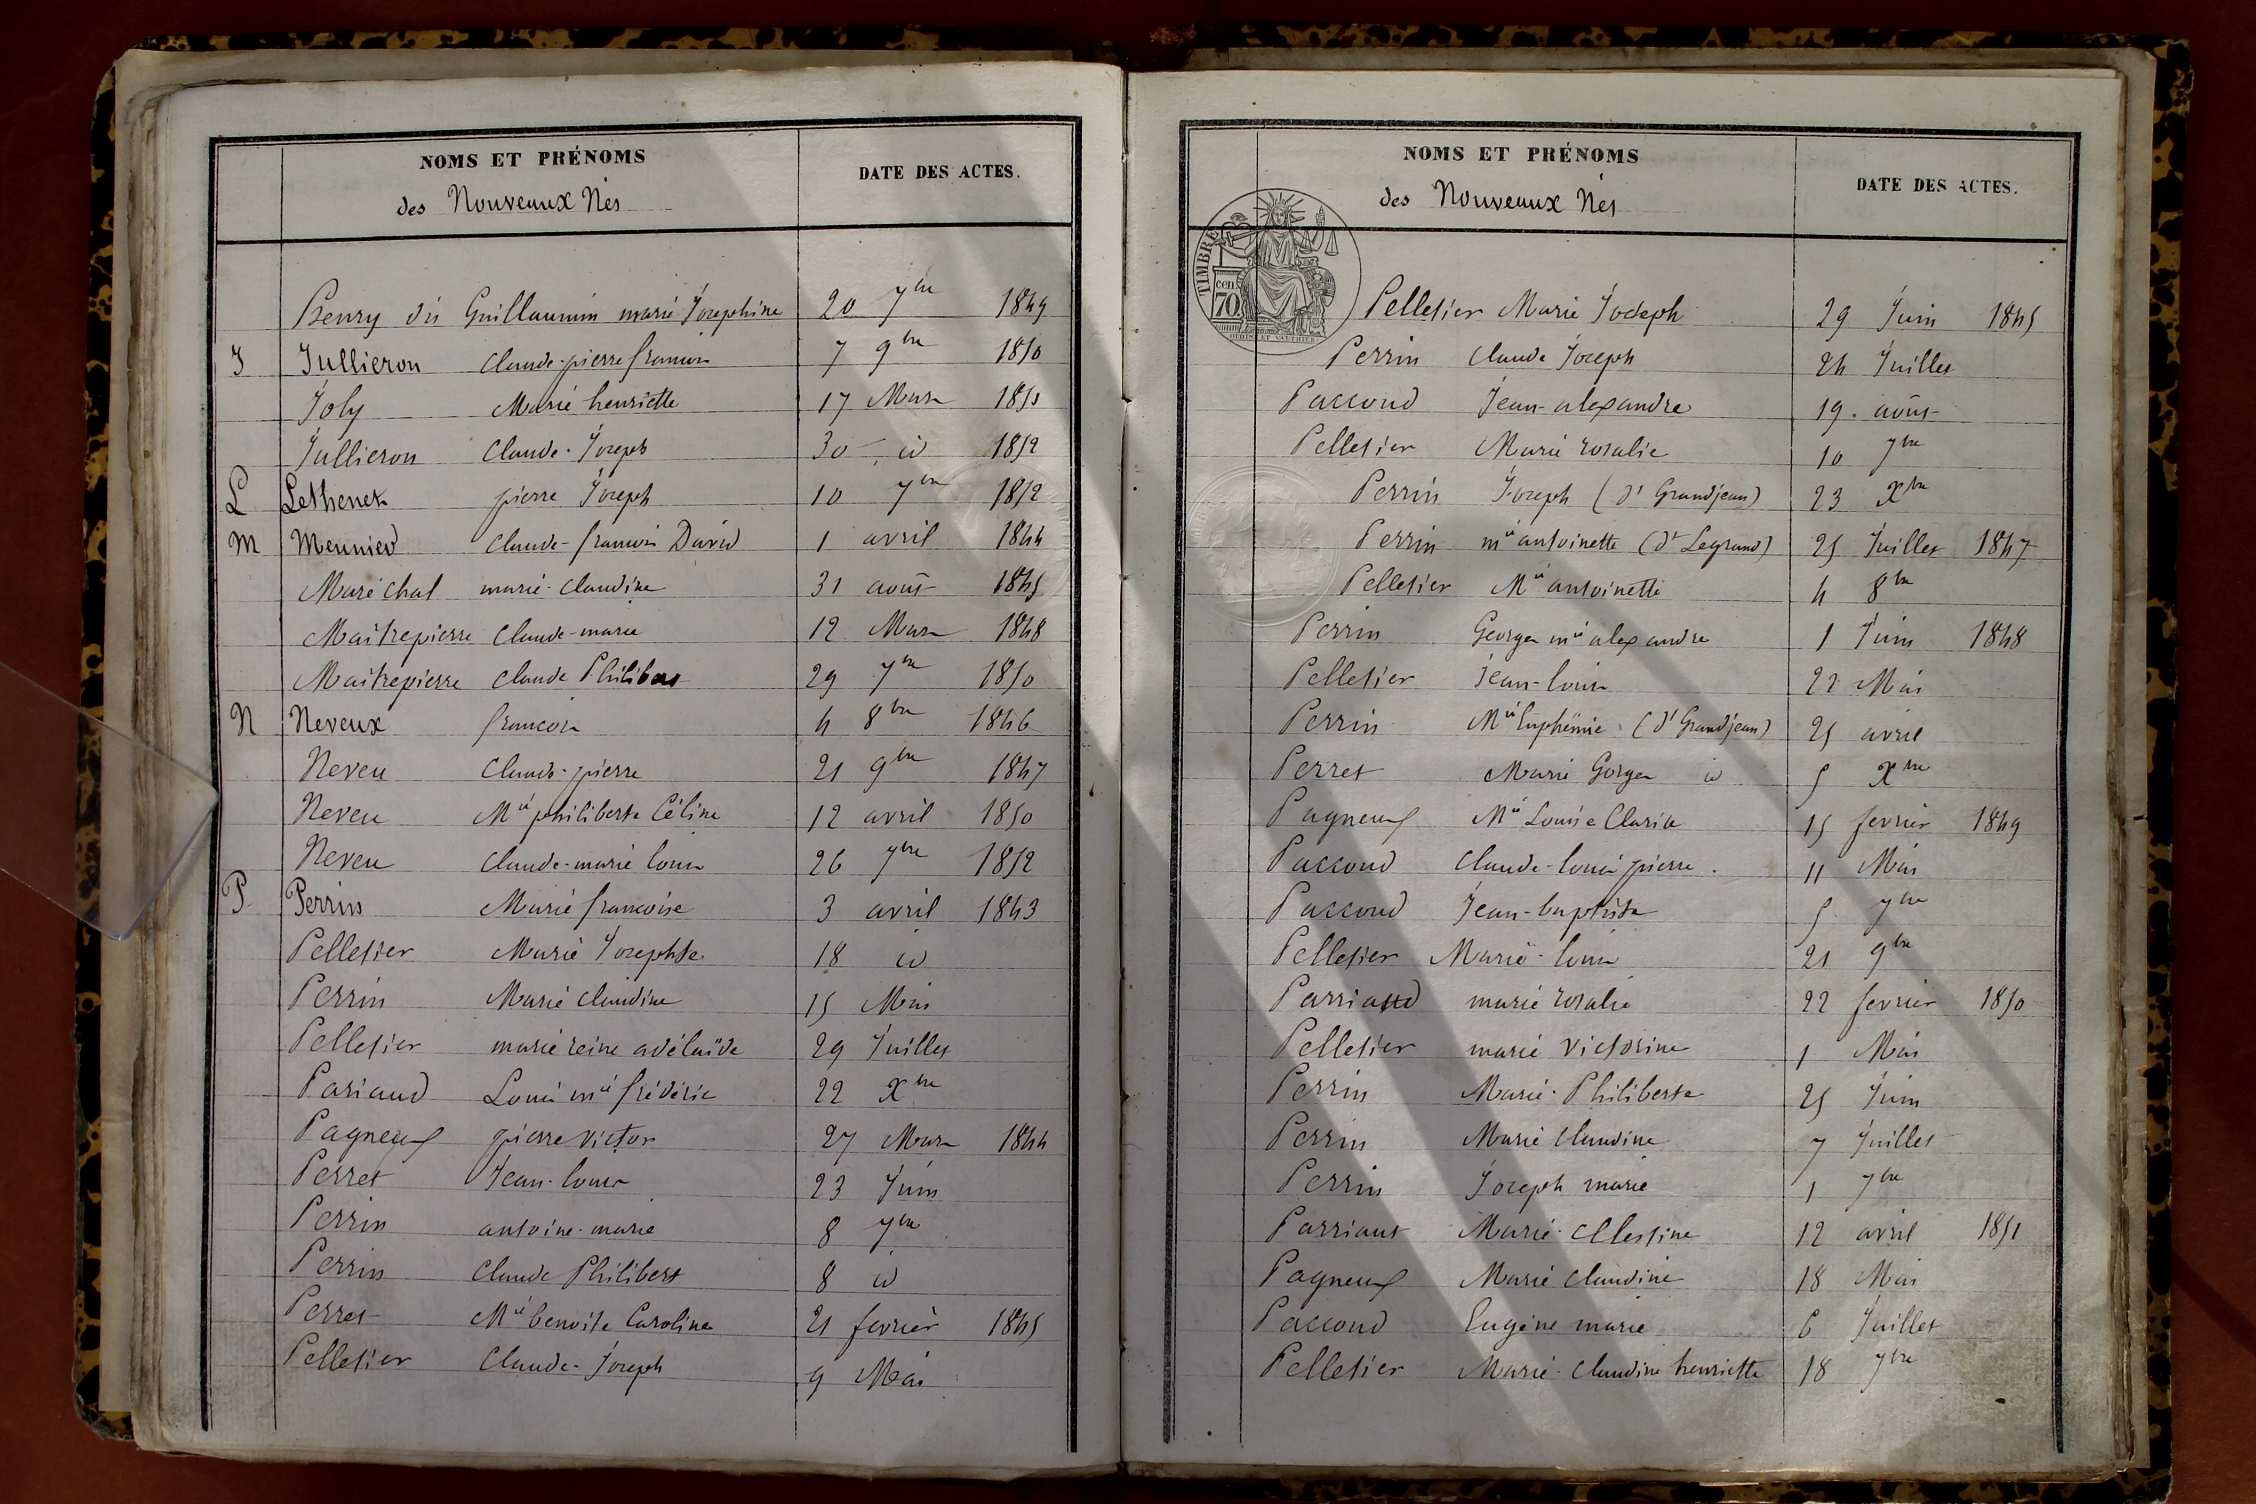 NOMS ET PRÉNOMS
des Nouveaux Nés
DATE DES ACTES.
Benry dit Guillaumin marie Josephine 20 7bre 1849
J Jullieron Claude-pierre francois 7 9bre 1850
Joly Marie henriette 17 Mars 1851
Jullieron Claude-Joseph 30 id 1852
L Lethenet pierre Joseph 10 7bre 1852
M Meunier Claude-francois David 1 avril 1844
Maréchal marie-Claudine 31 août 1845
Maîtrepierre Claude-marie 12 Mars 1848
Maîtrepierre Claude Philibert 29 7bre 1850
N Neveux francois 4 8bre 1846
Neveu Claude-pierre 21 9bre 1847
Neveu Mie philiberte Céline 12 avril 1850
Neveu Claude-marie louis 26 7bre 1852
P Perrin Marie francoise 3 avril 1843
Pelletier Marie Josephte 18 id
Perrin Marie Claudine 15 Mai
Pelletier marie reine adélaïde 29 Juillet
Pariaud Louis mie frédéric 22 Xbre
Pagneux pierre victor 27 Mars 1844
Perret Jean-louis 23 Juin
Perrin antoine-marie 8 7bre
Perrin Claude Philibert 8 id
Perret Mie benoite Caroline 21 fevrier 1845
Pelletier Claude-Joseph 9 Mai
NOMS ET PRÉNOMS
des Nouveaux Nés
DATE DES ACTES.
TIMBRE
cen
70
OUDINE ET VAUTHIER
Pelletier Marie Joseph 29 Juin 1845
Perrin Claude Joseph 24 Juillet
Paccoud Jean-alexandre 19. août
Pelletier Marie rosalie 10 7bre
Perrin Joseph (dt Grandjean) 23 Xbre
Perrin mie antoinette (dt Legrand) 25 Juillet 1847
Pelletier Mie antoinette 4 8bre
Perrin George mie alexandre 1 Juin 1848
Pelletier Jean-louis 22 Mai
Perrin Mie Euphémie (dt Grandjean) 25 avril
Perret Marie Gorge id 5 Xbre
Pagneux Mie Louise Clarisse 15 fevrier 1849
Paccoud Claude-louis pierre. 11 Mai
Paccoud Jean-baptiste 5 7bre
Pelletier Marie-louis 21 9bre
Parriaud marie rosalie 22 fevrier 1850
Pelletier marie victorine 1 Mai
Perrin Marie-Philiberte 25 Juin
Perrin Marie Claudine 7 Juillet
Perrin Joseph marie 1 7bre
Parriaut Marie-Célestine 12 avril 1851
Pagneux Marie Claudine 18 Mai
Paccoud Eugène marie 6 Juillet
Pelletier Marie-Claudine henriette 18 7bre